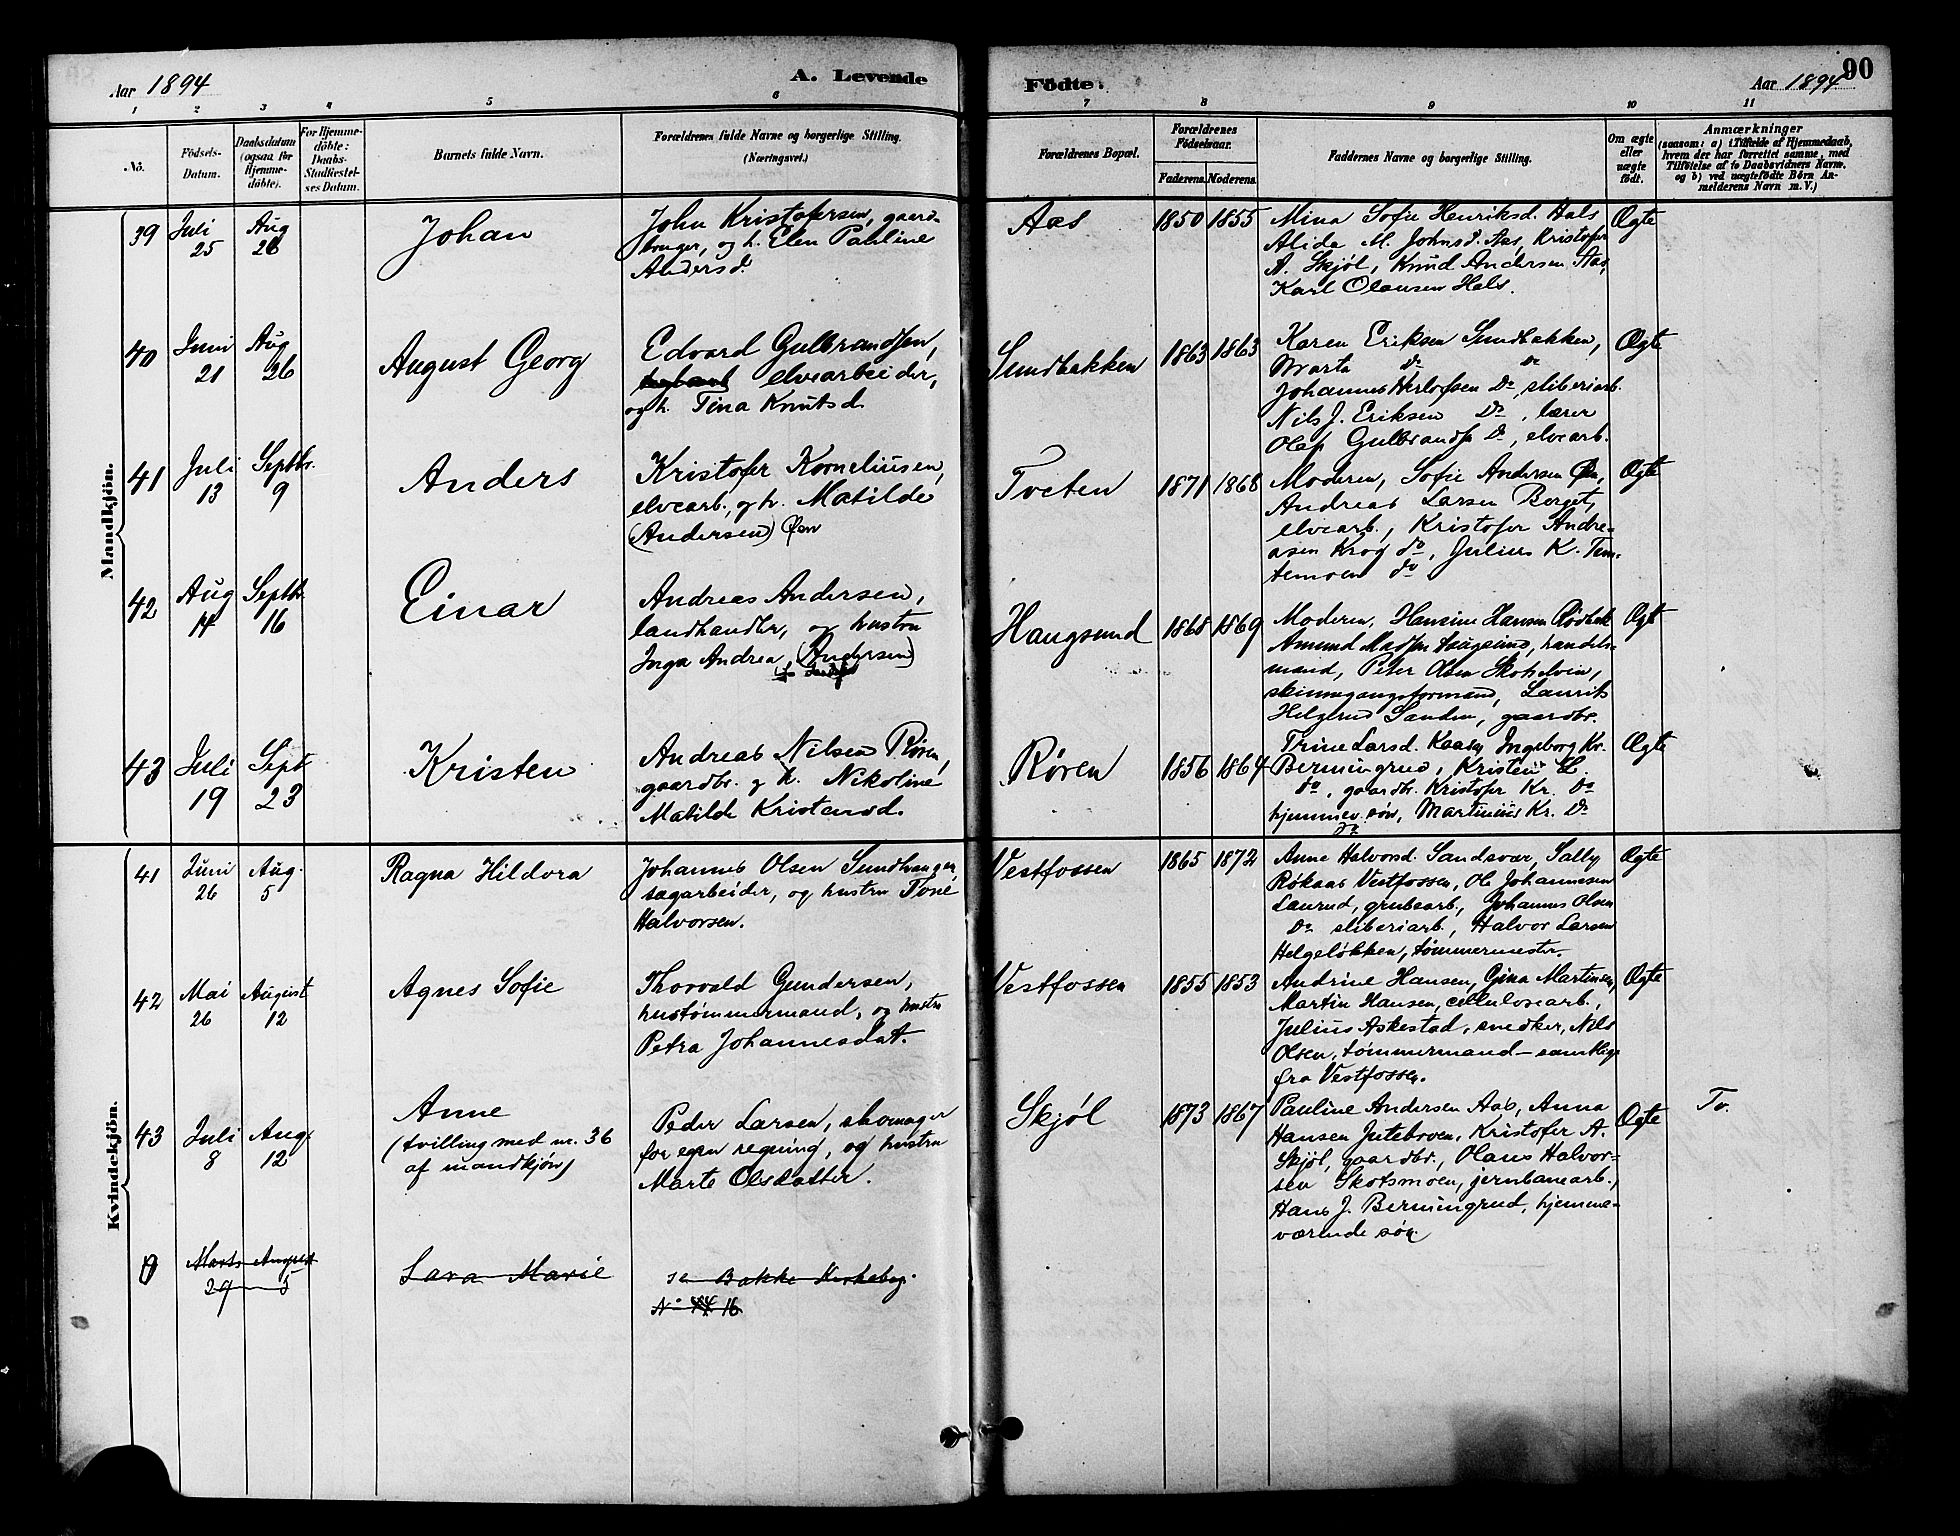 Aar 1894
A. Levende
Födte.
Aar 1894
90
1 2 3 4 5 6 7 8 9 10 11
No.
Födsels-
Datum.
Daabsdatum
(ogsaa for
Hjemme-
döbte).
For Hjemme-
döbte:
Daabs-
Stadfæstel-
ses Datum.
Barnets fulde Navn.
Forældrenes fulde Navne og borgerlige Stilling.
(Næringsvei.)
Forældrenes Bopæl.
Forældrenes
Födselsaar.
Faderens. Moderens.
Faddernes Navne og borgerlige Stilling.
Om ægte
eller
uægte
födt.
Anmærkninger
(saasom: a) i Tilfælde af Hjemmedaab,
hvem der har forrettet samme, med
Tilföielse af to Daabsvidners Navne.
og b) ved uægtefödte Börn An-
melderens Navn m. V.)
Mandkjön.
39
Juli
25
Aug
26
Johan
John Kristofersen, gaard-
bruger, og h. Elen Pauline
Andersd.
Aas
1850 1855
Mina Sofie Henriksd. Hals
Alida M. Johnsd. Aas, Kristofer
A. Skjöl, Knud Andersen Aas,
Karl Olausen Hals.
Ægte
40
Juni
21
Aug
26
August Georg
Edvard Gulbrandsen,
elvearbeider,
og h. Tina Knutsd.
Sundbakken
1863 1863
Karen Eriksen Sundbakken,
Marta Do Do
Johannes Herlofsen Do, sliberiarb.
Nils J. Eriksen Do, lærer
Olaf Gulbrands. Do, elvearb.
Ægte
41
Juli
13
Septbr.
9
Anders
Kristofer Kornelius​en,
elvearb., og h. Matilde
(Andersen) Øen
Tveten
1871 1868
Moderen, Sofie Andersen Øen,
Andreas Larsen Berget,
elvearb., Kristofer Andre-
asen Krog do, Julius K. Tem-
temoen do
Ægte
42
Aug
14
Septbr.
16
Einar
Andreas Andersen,
landhandler, og hustru
Inga Andrea, (Andersen)
Haugsund
1868 1869
Moderen, Hansine Hansen Rødbæk
Amund Madsen Haugsund, handels-
mand, Peter Olsen Skotselven,
skinnegangsformand, Laurits
Helgerud Sanden, gaardbr.
Ægt
43
Juli
19
Sept
23
Kristen
Andreas Nilsen Røren,
gaardbr. og h. Nikoline
Matilde Kristensd.
Røren
1856 1864
Trine Larsd. Kaasa, Ingeborg Kr.
Bermingrud, Kristen H.
do, gaardbr. Kristofer Kr. Do
hjemmev. søn, Martinius Kr. Do
Do
Ægte
Kvindekjön.
41
Juni
26
Aug.
5
Ragna Hildora
Johannes Olsen Sundhaugen,
sagarbeider, og hustru Tone
Halvorsen.
Vestfossen
1865 1872
Anne Halvorsd. Sandsvær, Sally
Røkaas Vestfossen, Ole Johannesen
Laurud, grubearb., Johannes Olsen
Do sliberiarb., Halvor Larsen
Helgeløkken, tømmermester.
Ægte
42
Mai
26
August
12
Agnes Sofie
Thorvald Gundersen,
hustømmermand, og hustru
Petra Johannesdat.
Vestfossen
1855 1853
Andrine Hansen, Gina Martinsen,
Martin Hansen, cellulosearb.,
Julius Askestad, snedker, Nils
Olsen, tømmermand – samtlige
fra Vestfossen.
Ægte
43
Juli
8
Aug.
12
Anne
(tvilling med nr. 36
af mandkjøn)
Peder Larsen, skomager
for egen regning, og hustru
Marte Olsdatter.
Skjøl
1873 1867
Pauline Andersen Aas, Anna
Hansen Juteboen, Kristofer A.
Skjøl, gaardbr., Olaus Halvor-
sen Skotsmoen, jernbanearb.,
Hans J. Bermingrud, hjemme-
værende søn
Ægte
Tv.
0
Marts
29
August
5
Sara Marie
se Bakke Kirkebog.
No 44 16